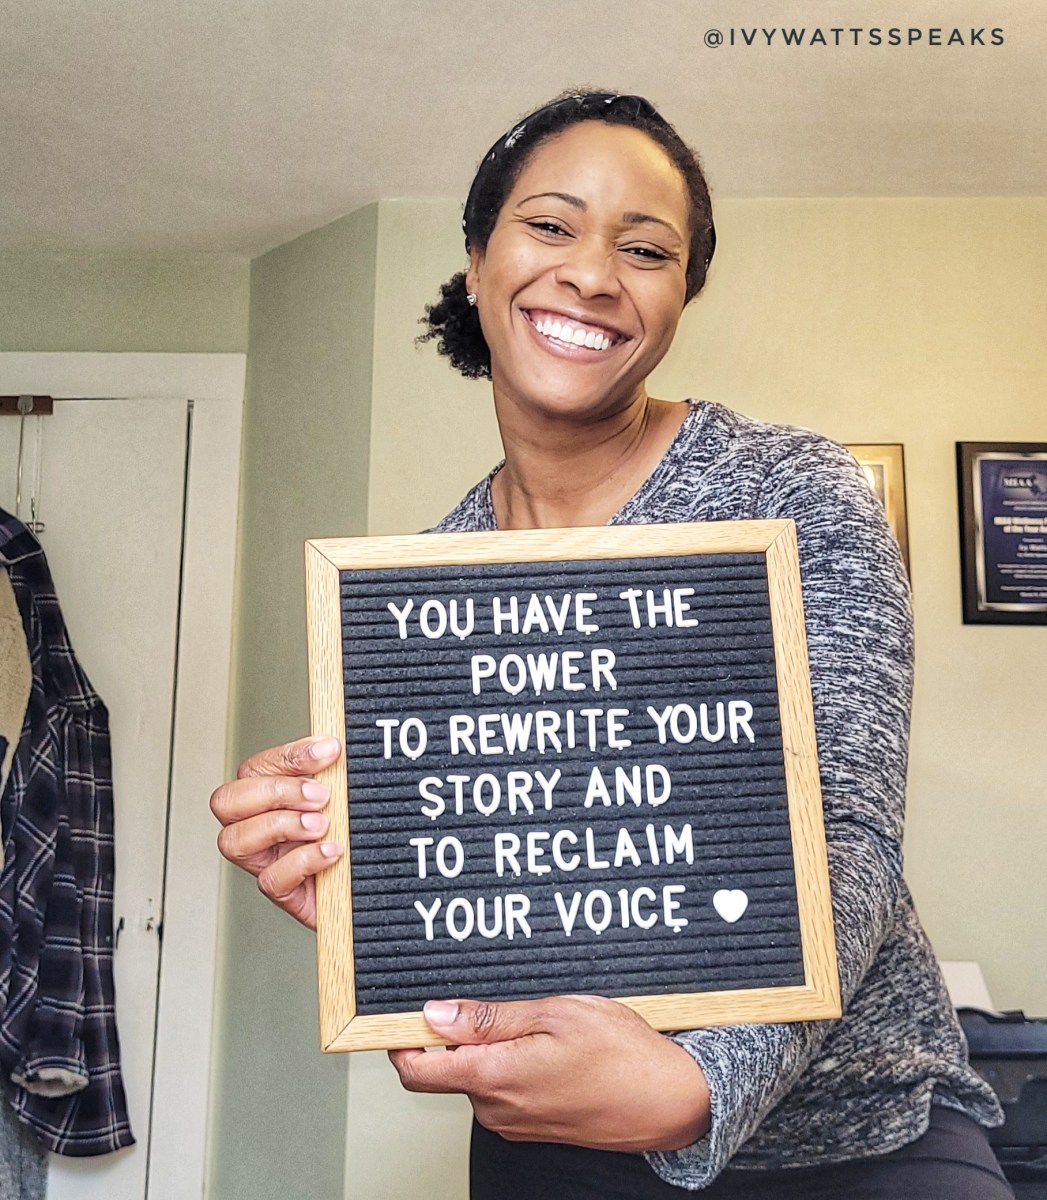 @IVYWATTSSPEAKS
YOU HAVE THE
POWER
TO REWRITE YOUR
STORY AND
TO RECLAIM
YOUR VOICE